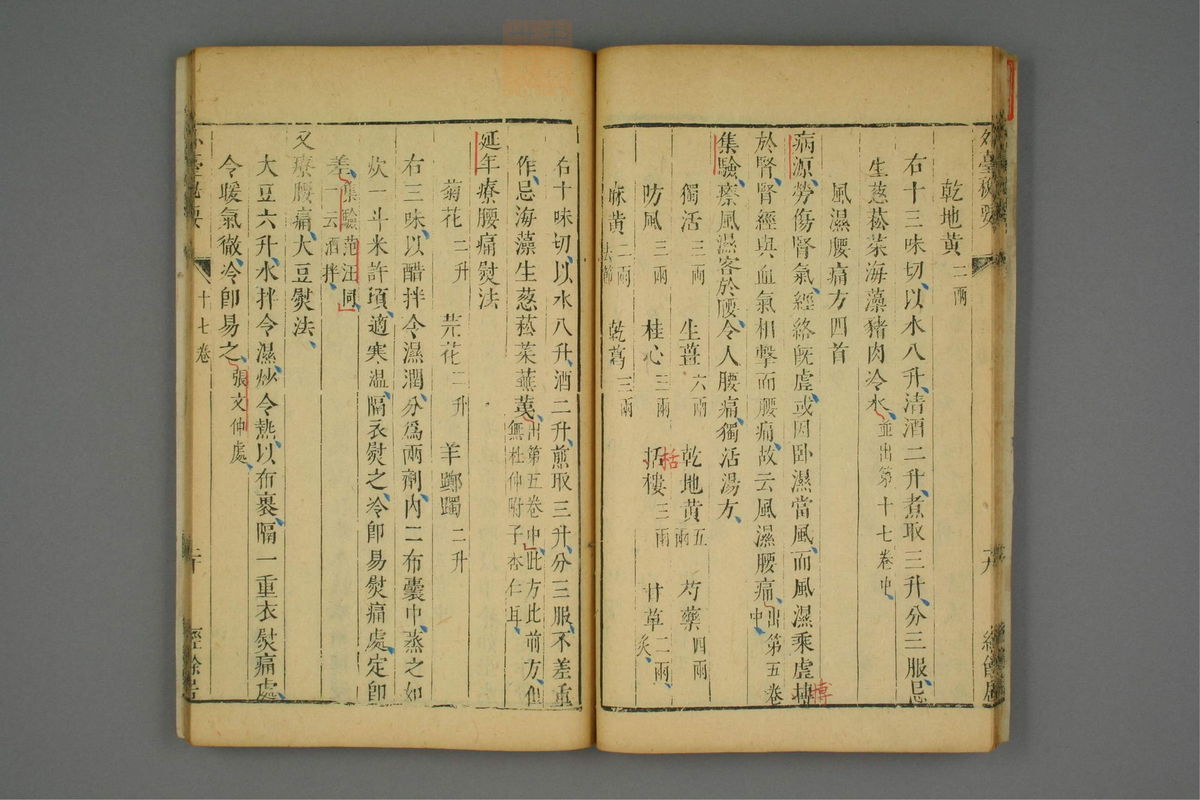 乾地黄二兩
右十三味切以水八升清酒二升煮取三升分三服忌
生葱菘菜海藻豬肉冷水並出第十七卷中
風濕腰痛方四首
病源勞傷腎氣經絡旣虛或因卧濕當風而風濕乘虛摶
博
於腎腎經與血氣相擊而腰痛故云風濕腰痛出第五卷中
集驗療風濕客於腰令人腰痛獨活湯方
獨活三兩 生薑六兩 乾地黄五兩 芍藥四兩
防風三兩 桂心三兩 括樓三兩 甘草二兩炙
栝
麻黄二兩去節 乾葛三兩
外臺秘要
十九
經餘居
右十味切以水八升酒二升煎取三升分三服不差重
作忌海藻生葱菘菜蕪荑出第五卷中此方比前方但無杜仲附子杏仁耳
延年療腰痛熨法
菊花二升 芫花二升 羊躑躅二升
右三味以醋拌令濕潤分爲兩劑内二布囊中蒸之如
炊一斗米許頃適寒温隔衣熨之冷卽易熨痛處定卽
差集驗范汪同一云酒拌
又療腰痛大豆熨法
大豆六升水拌令濕炒令熱以布裹隔一重衣熨痛處
令暖氣徹冷卽易之張文仲處
外臺秘要
十七卷
二十
經餘居